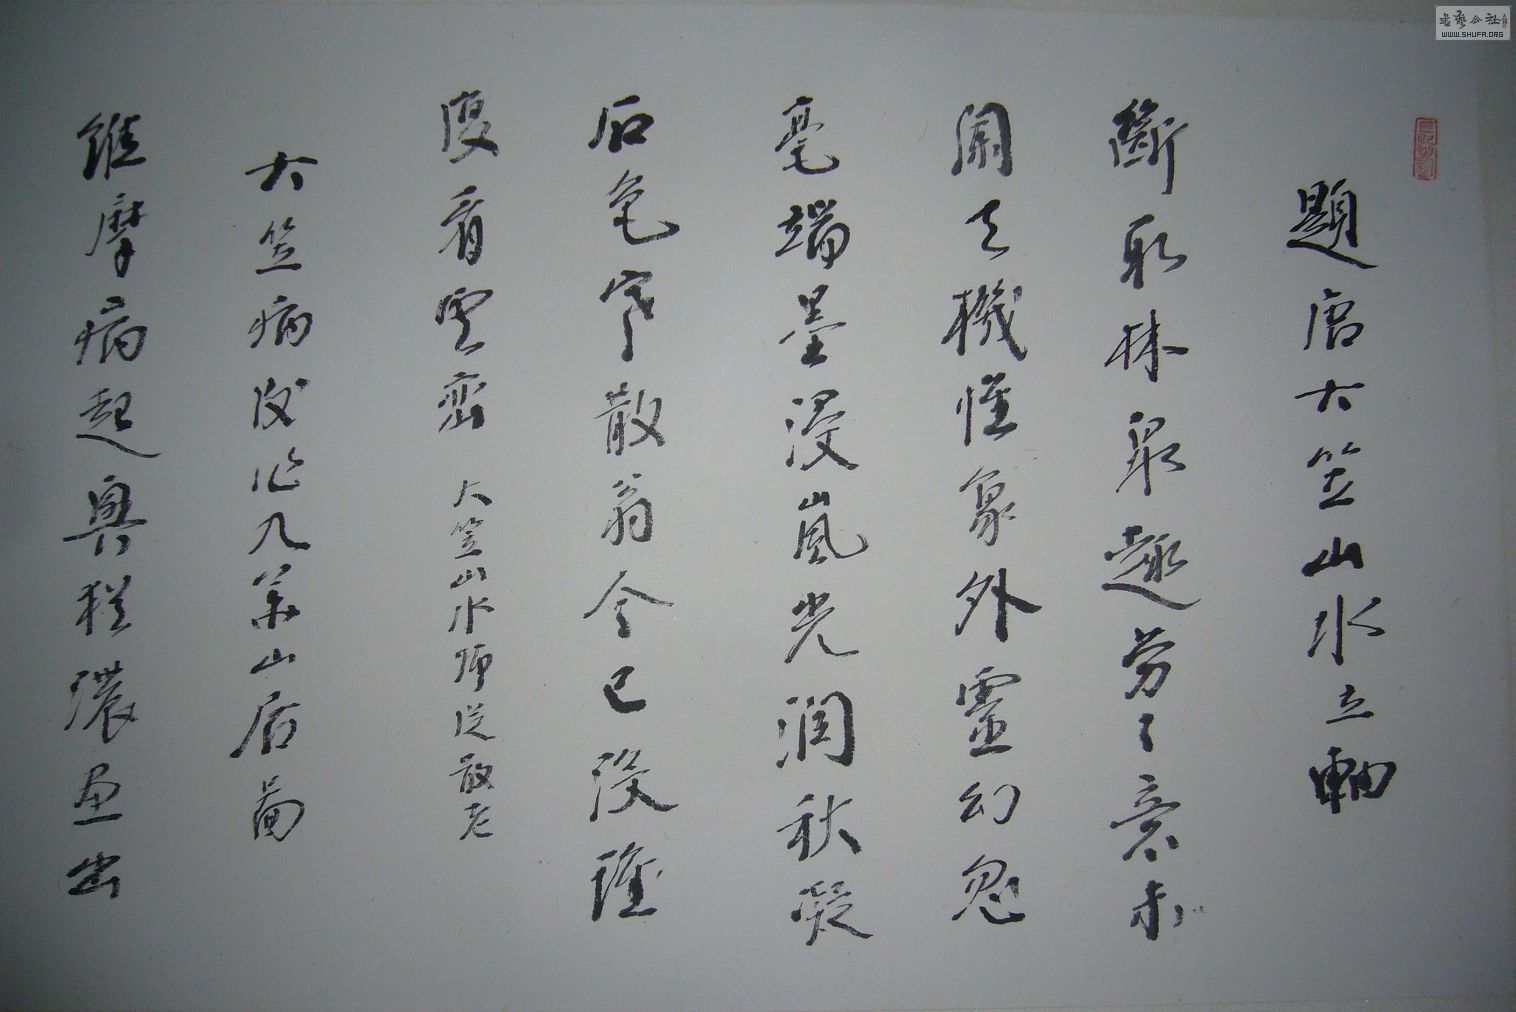 題唐大笠山水立軸
斷取林泉趣勞〻意未
闌天機惟象外靈幻忽
毫端墨浸嵐光潤秋凝
石色寒散翁今已沒誰
復看雲巒 大笠山水師從散老
大笠病後作九華山居圖
維摩病起興猶濃畫出
WWW.SHUFA.ORG